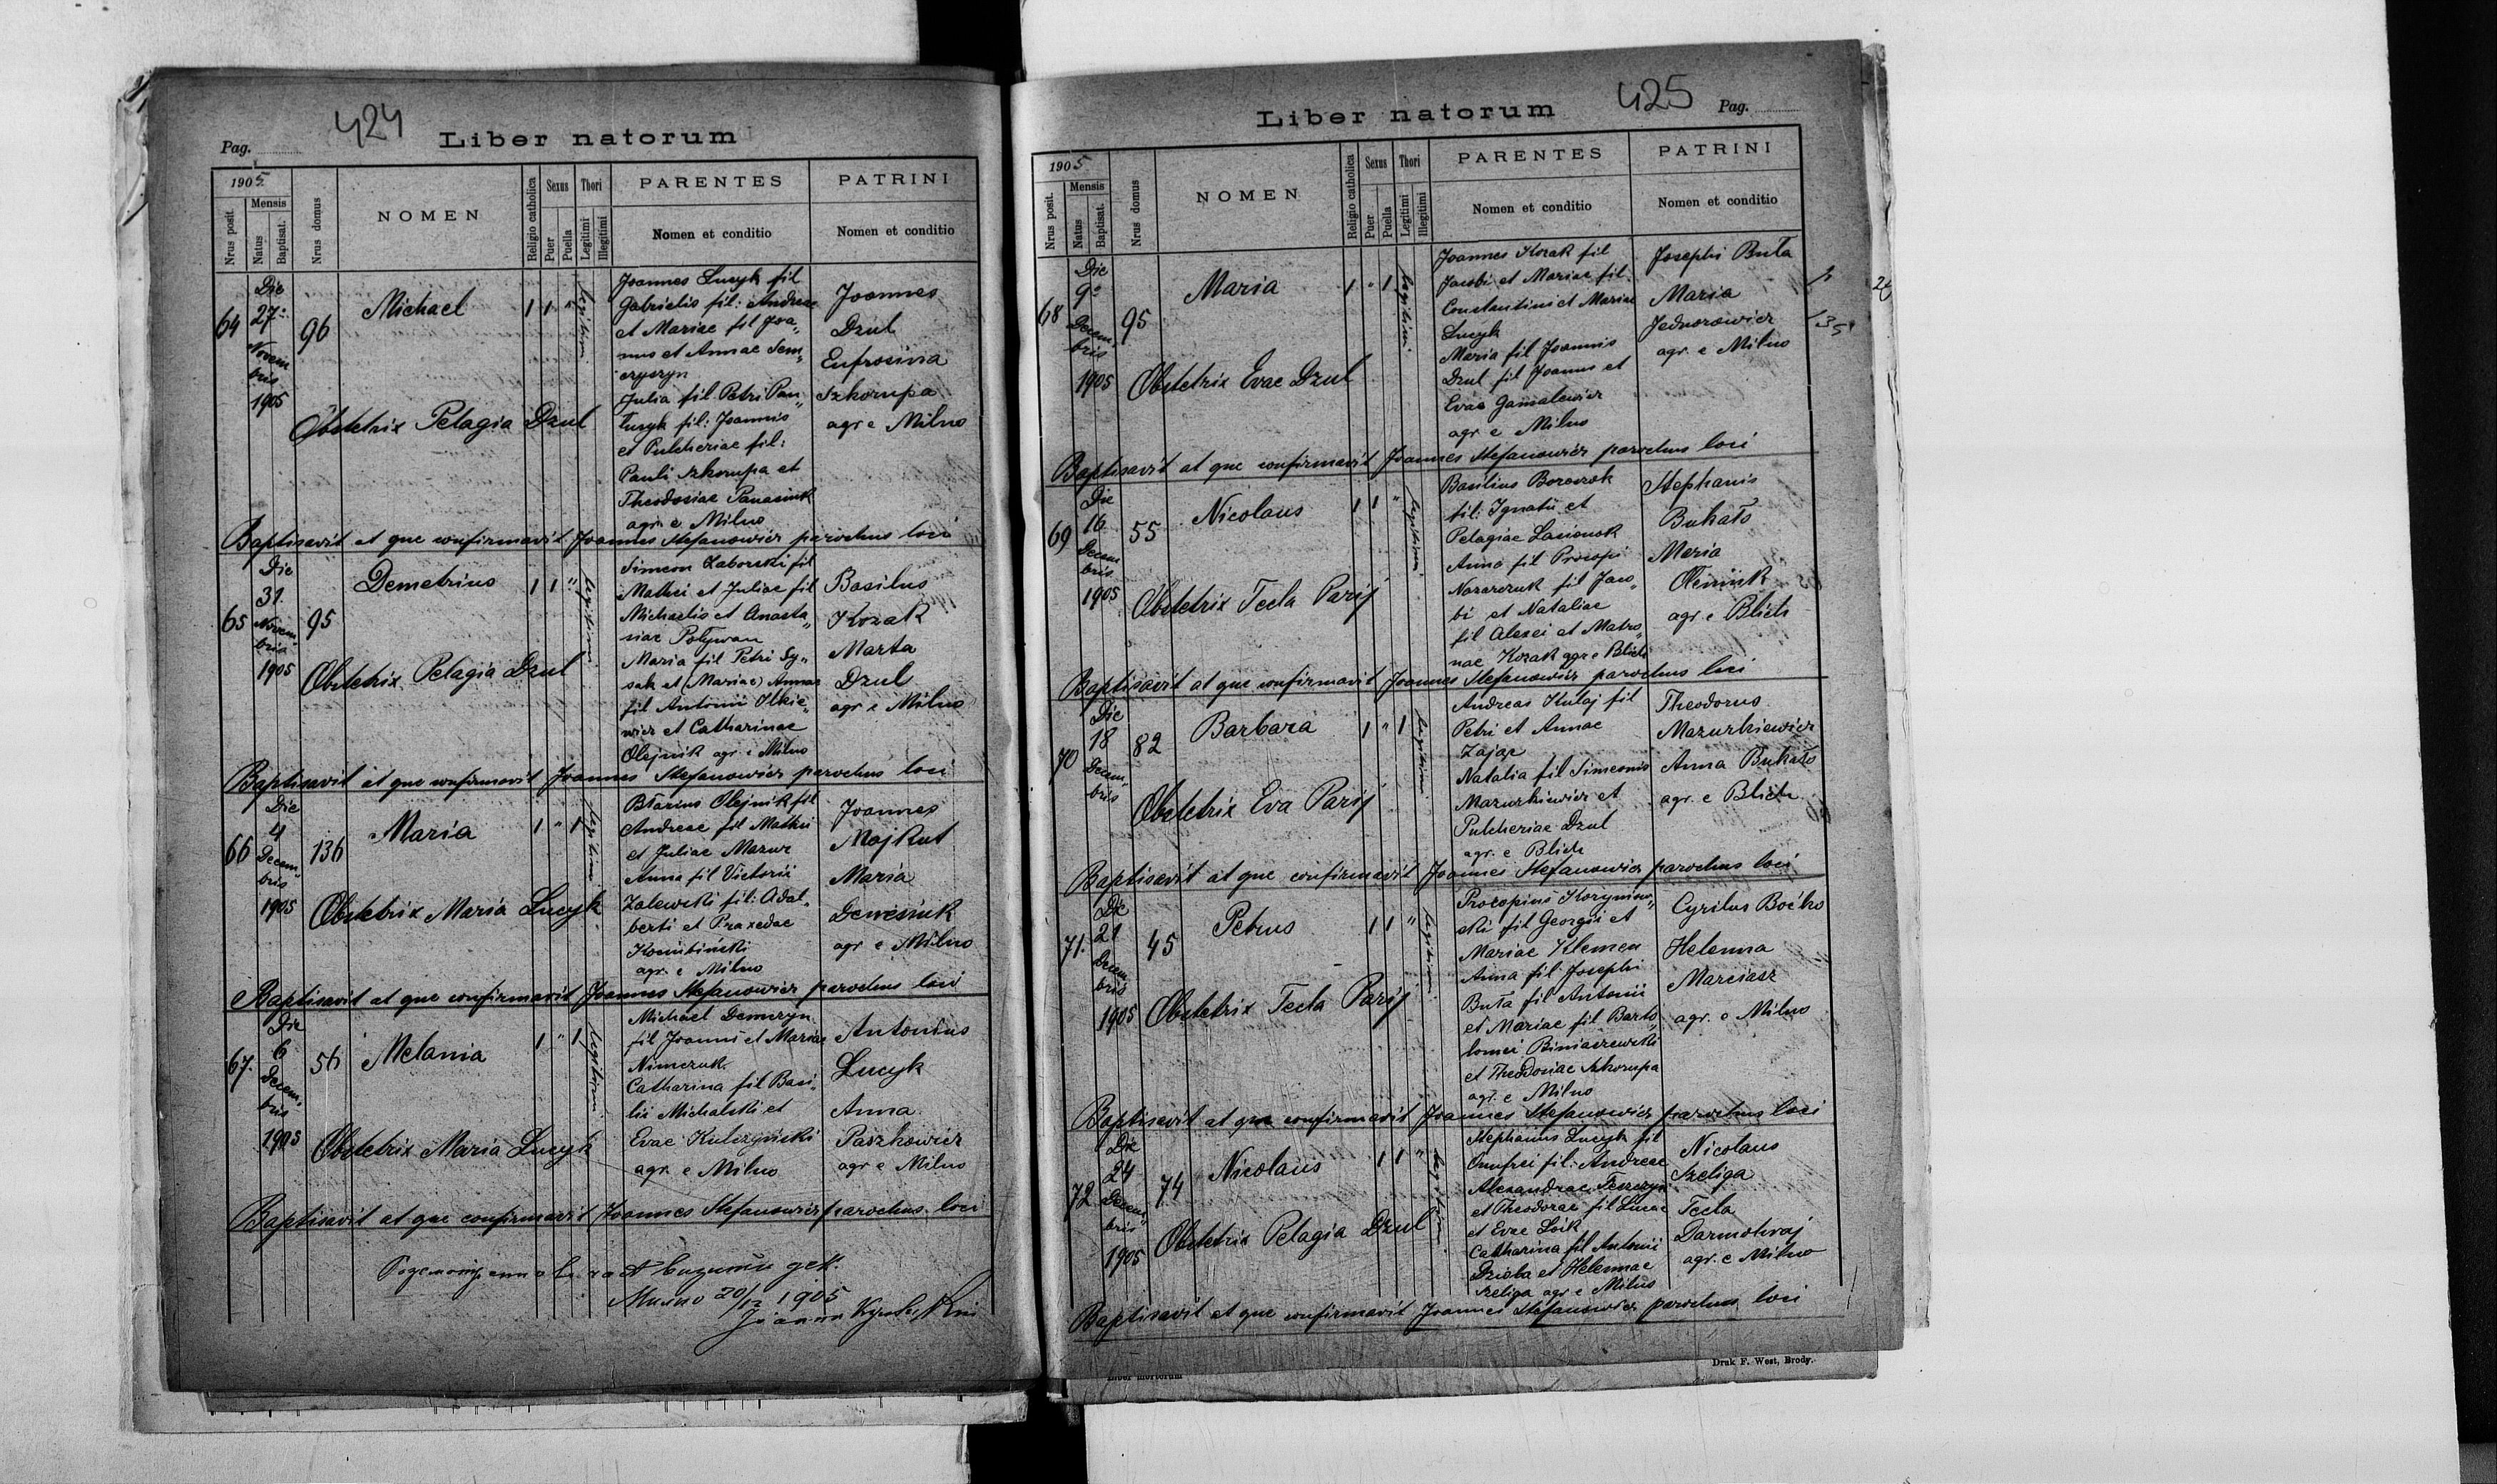 424
Pag.
Liber natorum
1905
Nrus posit.
Mensis
Natus
Baptisat.
Nrus domus
NOMEN
Religio catholica
Sexus
Puer
Puella
Thori
Legitimi
Illegitimi
PARENTES
Nomen et conditio
PATRINI
Nomen et conditio
64
Die
27a
Novem
bris
1905
96
Michael
1 1 "
legitimi
Obstetrix Pelagia Dzul
Joannes Lucyk fil
Gabrielis fil: Andreae
et Mariae fil Joa„
nnis et Annae Sem„
czyszyn
Julia fil Petri Pan„
Lucyk fil: Joannis
et Pulcheriae fil:
Pauli Szkorupa et
Theodosiae Panasiuk
agr. e Milno
Joannes
Dzul
Eufrosina
Szkorupa
agr e Milno
Baptisavit at que confirmavit Joannes Stefanowicz parochus loci
65
Die
31.
Novem„
bris
1905
95
Demetrius
1 1 "
legitimi
Obstetrix Pelagia Dzul
Simeon Zaborski fil
Mathei et Juliae fil
Michaelis et Anasta„
siae Polywan
Maria fil Petri Sy„
sak et (Mariae) Annae
fil Antonii Ilkie„
wicz et Catharinae
Olejnik agr. e Milno
Basilus
Kozak
Marta
Dzul
agr e Milno
Baptisavit at que confirmavit Joannes Stefanowicz parochus loci
66
Die
4
Decem„
bris
1905
136
Maria
1 " 1
legitimi
Obstetrix Maria Lucyk
Olejnik fil
Andreae fil Mathei
et Juliae Mazur
Anna fil Victorii
Zalewski fil: Adal„
berti et Praxedae
agr. e Milno
Joannes
Majkut
Maria
agr e Milno
Baptisavit at que confirmavit Joannes Stefanowicz parochus loci
67.
Die
6
Decem„
bris
1905
56
Melania
1 " 1
legitimi
Obstetrix Maria Lucyk
Michael Demczyn
fil Joannis et Mariae
Nimczuk.
Catharina fil Basi„
lii Michalski et
Evae Kulczyński
agr. e Milno
Antonius
Lucyk
Anna
Paszkowicz
agr e Milno
Baptisavit at que confirmavit Joannes Stefanowicz parochus loci
Мильно 20/12 1905
425
Liber natorum
Pag.
1905
Nrus posit.
Mensis
Natus
Baptisat.
Nrus domus
NOMEN
Religio catholica
Sexus
Puer
Puella
Thori
Legitimi
Illegitimi
PARENTES
Nomen et conditio
PATRINI
Nomen et conditio
68
Die
9a
Decem„
bris
1905
95
Maria
1 " 1
legitimi
Obstetrix Evae Dzul
Joannes Kozak fil
Jacobi et Mariae fil.
Constantini et Mariae
Lucyk
Maria fil Joannis
Dzul fil Joannis et
Evae Gamalewicz
agr e Milno
Josephi Buta
Maria
Jednorowicz
agr. e Milno
Baptisavit at que confirmavit Joannes Stefanowicz parochus loci
69
Die
16
Decem
bris
1905
55
Nicolaus
1 1 "
legitimi
Obstetrix Tecla Parij
Basilius Boroczok
fil: Ignatii et
Pelagiae Lasionok
Anna fil Procopi
Nazarczuk fil Jaco„
bi et Nataliae
fil Alexei et Matro„
nae Kozak agr e Blich
Stephanis
Bukało
Maria
Olejnik
agr e Blich
Baptisavit at que confirmavit Joannes Stefanowicz parochus loci
70
Die
18
Decem„
bris
82
Barbara
1 " 1
legitimi
Obstetrix Eva Parij
Andreas Kulaj fil
Petri et Annae
Zając
Natalia fil Simeonis
Mazurkiewicz et
Pulcheriae Dzul
agr. e Blich
Theodorus
Mazurkiewicz
Anna Bukało
agr. e Blich
Baptisavit at que confirmavit Joannes Stefanowicz parochus loci
71.
Die
21
Decem„
bris
1905
45
Petrus
1 1 "
legitimi
Obstetrix Tecla Parij
Procopius Koryniow„
ski fil Georgii et
Mariae Klemen
Anna fil Josephi
Buta fil Antonii
et Mariae fil Barto„
lomei Biniaszewski
et Theodosiae Szkorupa
agr. e Milno
Cyrilus Boćko
Helenna
Marciasz
agr. e Milno
Baptisavit at que confirmavit Joannes Stefanowicz parochus loci
72
Die
24
Decem„
bris
1905
74
Nicolaus
1 1 "
legitimi
Obstetrix Pelagia Dzul
Stephanus Lucyk fil
Onufrei fil: Andreae
Alexandrae
et Theodorae fil Lucae
et Evae Łoik
Catharina fil Antonii
Dzioba et Helennae
Szeliga agr e Milno
Nicolaus
Szeliga
Tecla
Darmohraj
agr. e Milno
Baptisavit at que confirmavit Joannes Stefanowicz parochus loci
Druk F. West, Brody.
Liber mortorum